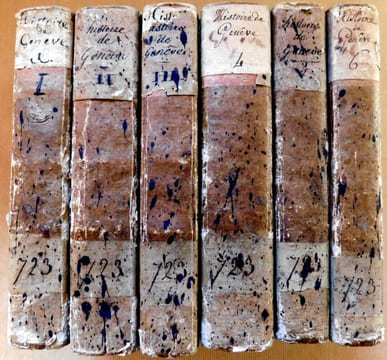 Histoire
Geneve
I
723
histoire
de
Genève
II
723
Histoire
de
Genève
III
723
Histoire de
Genève
4
723
Histoire
de
Genève
V
723
Histoire
Genève
6
723